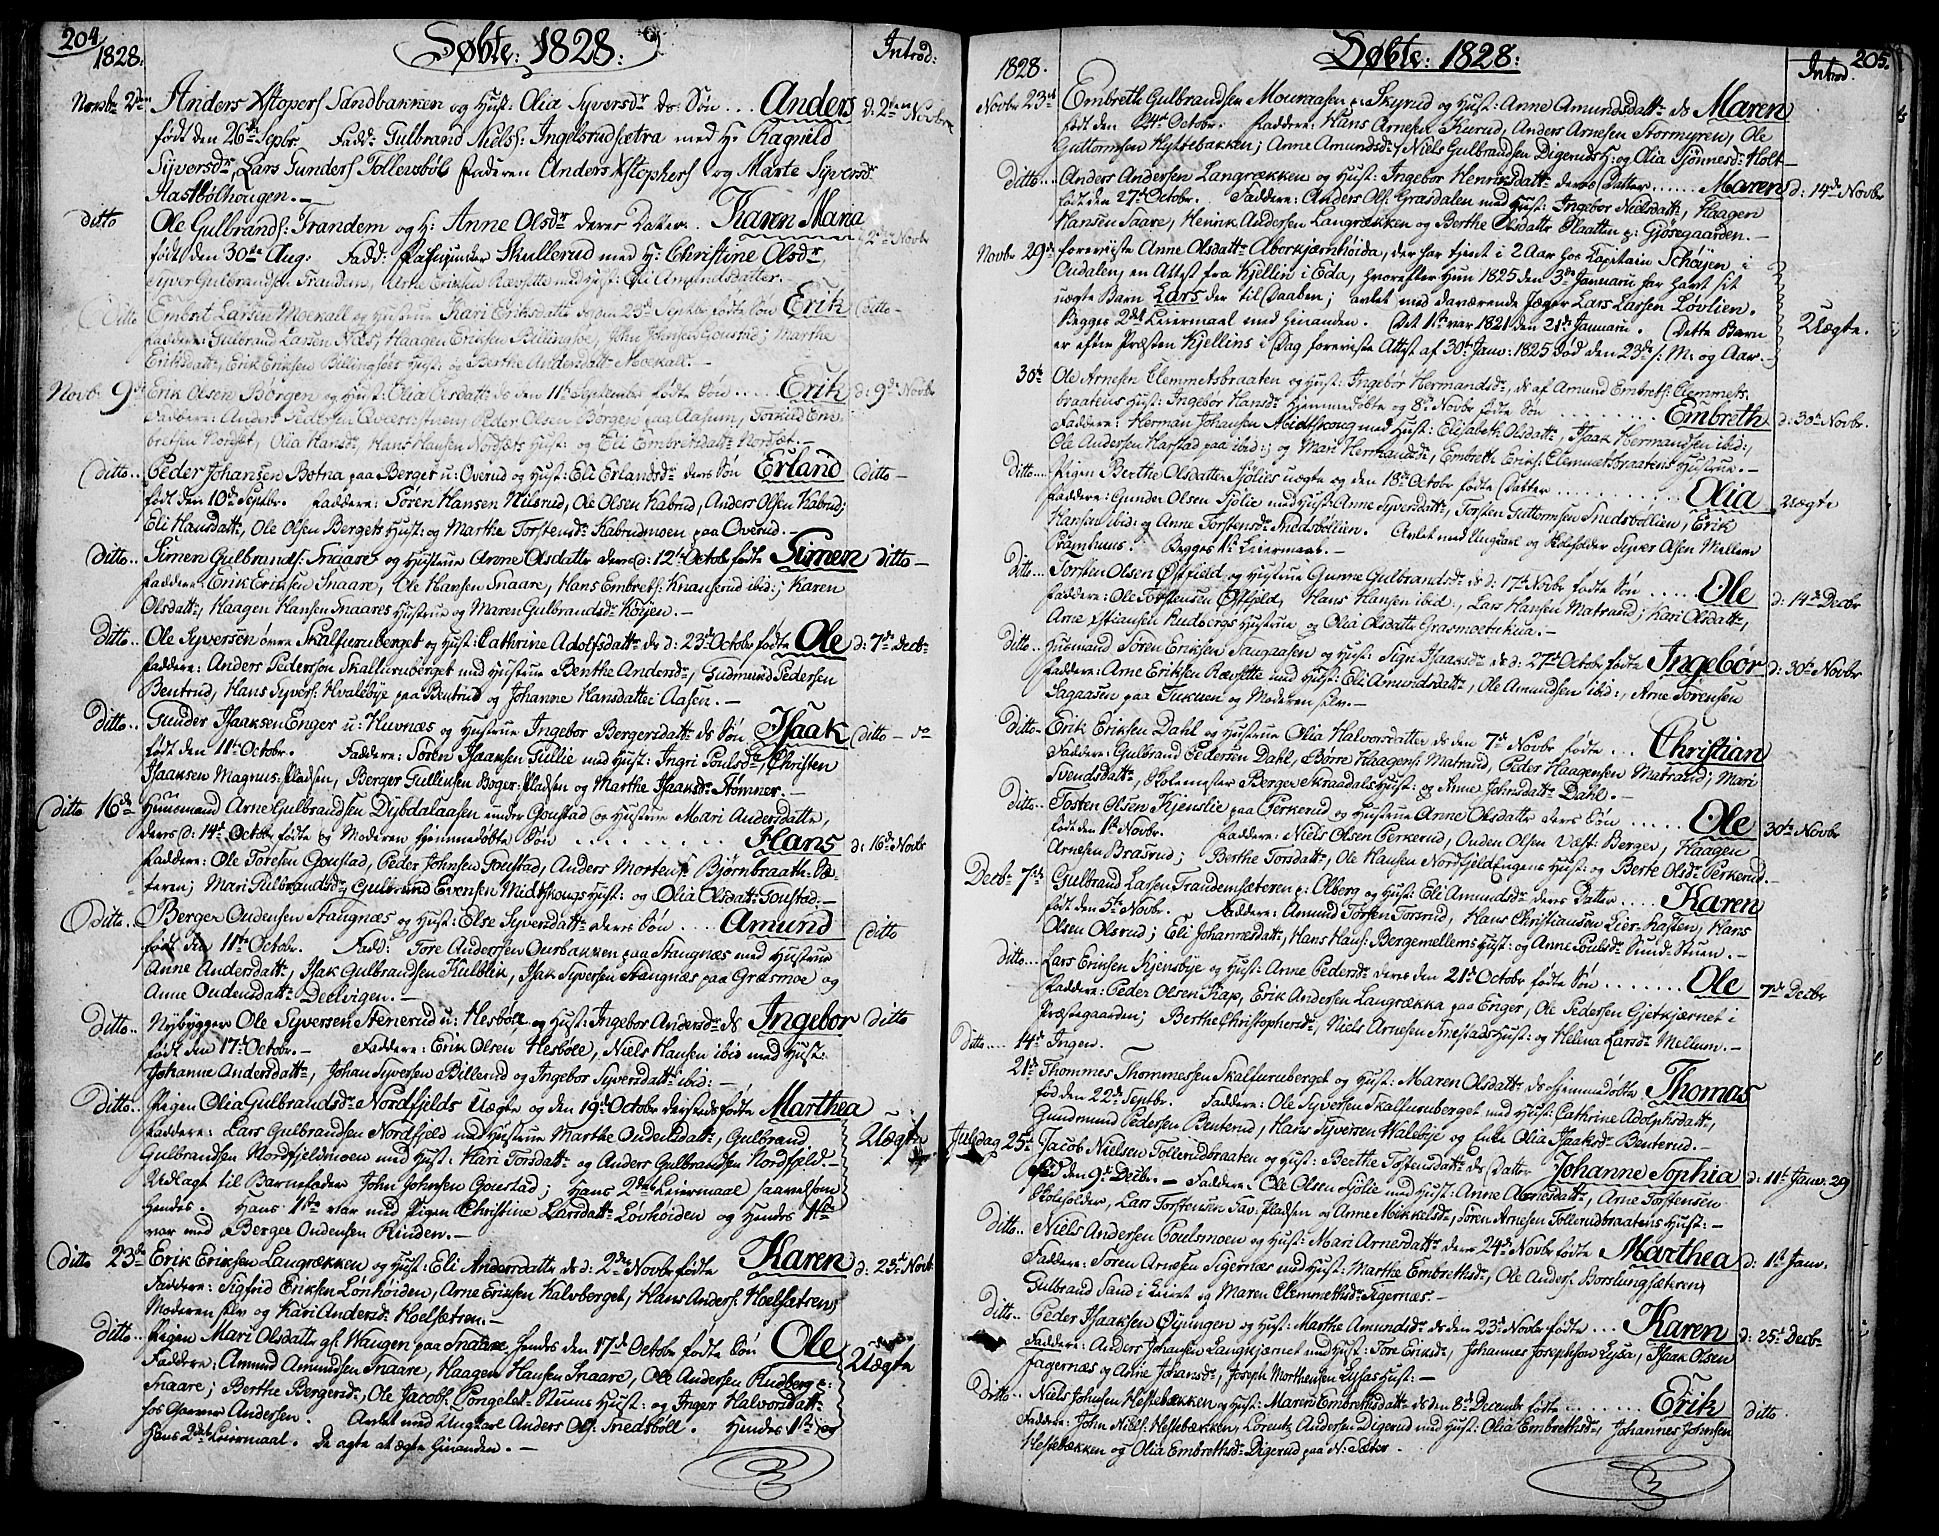 204
Døbte: 1828.
1828. Introd:
Novbr 2den Anders Xstophers Sandbakken og Hust: Olia Syversdr ds Søn ... Anders d: 2den Novbr
født den 26de Septbr Fadd: Gulbrand Niels: Ingelsrudsætra med H: Ragnild
Syversdr, Lars Gunders Tollersbøl Faderen Anders Xstophers og Marte Syversdr
Hastbølhougen. —
ditto Ole Gulbrands: Trandem og H: Anne Olsdr deres Datter. Karen Maria 2den Novbr
født den 30te Aug: Fadd: Skullerud med H: Christine Olsdr,
Syver Gulbrandsen Trandem, Arne Eriksen Rørsætte med Hust: Eli Amundsdatter.
Ditto Embret Larsen Moekall og Hustrue Kari Eriksdatte deres den 25de Septbr fødte Søn Erik Ditto —
Faddere: Gulbrand Larsen Næs, Haagen Eriksen Billingsøe, John Johnsen Goustad; Marthe
Eriksdatt, Erik Eriksen Billingsøes Hust: og Berthe Andersdatt Moekall. —
Novb: 9de Erik Olsen Børgen og Hust: Olia Olsdatt ds den 11te September fødte Søn .... Erik d: 9de Novbr
Faddere: Anders Peder Olsen Børgen paa Aasum, Torkild Em-
bretsen Nordset, Olia Hansdr, Hans Hansen Nordsets Hust: og Eli Embretsdatt Nordset. —
Ditto.. Peder Johansen Botna paa Berget u: Overud og Hust: Eli Erlandsdr ders Søn Erland Ditto —
født den 10de Septbr. Faddere: Søren Hansen Nilsrud, Ole Olsen Kabrud, Anders Olsen Kabrud;
Eli Hansdatt, Ole Olsen Bergets Hust: og Marthe Torstensdr Kabrudmoen paa Overud. —
Ditto.. Simen Gulbrands: Snaare og Hustrue Anne Olsdatte deres d: 12te Octobr fødte Simen ditto —
Faddere: Erik Eriksen Snaare, Ole Hansen Snaare, Hans Embrets: Knapserud ibid; Karen
Olsdatt, Haagen Hansen Snaares Hustrue og Maren Gulbrandsdr Kolsjen. —
Ditto.. Ole Syversen øvre Skalfuruberget og Hust: Cathrine Adolfsdatt ds d: 23de Octobr fødte Ole d: 7de Decbr
Faddere: Anders Pedersson Skalfuruberget med Hustrue Berthe Andersdr, Gudmund Pedersen
Benterud, Hans Syvers: Hvalebye paa Benterud og Johanne Hansdatter Aasen. —
Ditto.. Gunder Isaaksen Enger u: Huvnæs og Hustrue Ingebor Bergersdatt ds Søn Isaak Ditto —
født den 11te Octobr. Faddere: Søren Isaaksen Gullie med Hust: Ingri Poulsdr, Christen
Isaaksen Magnus-Pladsen, Berger Gullixsen Boger-Pladsen og Marthe Isaaksdr Stømner. —
Ditto 16de Huusmand Arne Gulbrandsen Dybdalaasen under Goustad og Hustrue Mari Andersdatte,
ders d: 14de Octobr fødte og Moderen Hjemmedøbte Søn ......... Hans d: 16de Novbr
Faddere: Ole Toresen Goustad, Peder Johnsen Goustad, Anders Mortens: Bjørnbraath: Sæ-
teren; Mari Gulbrandsdr, Gulbrand Evensen Midtskougs Hust: og Olia Olsdatt Goustad. —
Ditto.. Berger Oudensen Stangnæs og Hust: Else Syversdatt deres Søn .... Amund Ditto
født den 11te Octobr. Fadd: Tore Andersen Ourbakken paa Stangnæs med Hustrue
Anne Andersdatt, Isak Gulbrandsen Kulblik, Isak Syversen Stangnæs paa Græsmoe og
Anne Oudensdatt Dellvigen. —
Ditto.. Nybygger Ole Syversen Stenerud u: Hesbøle og Hust: Ingebor Andersdr ds Ingebor Ditto
født den 17de Octobr. — Faddere: Erik Olsen Hesbøle, Niels Hansen ibid med Hust:
Johanne Andersdatt, Johan Syversen Billerud og Ingebor Syversdatt ibid: —
Ditto.. Pigen Olia Gulbrandsdr Nordfjelds Uægte og den 19de Octobr fødte Marthea Uægte
Faddere: Lars Gulbrandsen Nordfjeld med Hustrue Marthe Oudensdatt, Gulbrand
Gulbrandsen Nordfjeldmoen med Hust: Kari Torsdatt og Anders Gulbrandsen Nordfjeld. —
Udlagt til Barnefader John Johnsen Goustad; Hans 2det Leiermaal saavelsom
Hendes. Hans: 1ste var med Pigen Christine Larsdatt Løvhøiden og Hendes 1ste
var med Berger Oudensen Rinden. —
Ditto 23de Erik Eriksen Langrækken og Hust: Eli Andersdatte ds d: 2den Novbr fødte Karen d: 23de Novb:
Faddere: Sigfrid Eriksen Lønhøiden, Arne Eriksen Kalvberget, Hans Anders: Hoelsætren,
Moderen selv og Kari Andersdr Hoelsætren. —
Ditto.. Pigen Mari Olsdatte af Waugen paa Snaare, hendes den 17de Octobr fødte Søn Ole Uægte
Faddere: Amund Amundsen Snaare, Haagen Hansen Snaare, Ole Andersen Rudberg p:
Snaare; Berthe Bergersdr, Ole Jacobs: Pongelet-Stuens Hust: og Inger Halvorsdatt
hos Gunner Andersen. Avlet med Ungkarl Anders Ols: Snedsbøll. Hendes 1ste og
Hans 2det Leiermaal. De agte at ægte hinanden. —
205.
Døbte: 1828:
1828. Introd.
Novbr 23de Embreth Gulbrandsen Mouraasen p: Skyrud og Hust: Anne Amundsdatt ds Maren
født den 24de Octobr. Faddere: Hans Arnesen Kurud, Anders Arnesen Stormyren, Ole
Guttormsen Kyltebakken; Anne Amundsdr, Niels Gulbrandsen Digeruds H: og Olia Tjønnesdr Holt —
ditto.... Anders Andersen Langrækken og Hust: Ingebor Henriksdatt deres Datter ...... Maren d: 14de Novbr
født den 27de Octobr. Faddere: Anders Ols: Grasdalen med Hust: Ingebor Nielsdatt, Haagen
Hansen Saare, Henrik Andersen Langrækken og Berthe Olsdatte Slaatten p: Gjøsegaarden. —
Novbr 29de foreviiste Anne Olsdatt Abborkjærnhøida, der har tjent i 2 Aar hos Kapitain Schøyen i
Oudalen, en Attest fra Kjellin i Eda, hvorefter Hun 1825 den 3de Januarii har havt sit
uægte Barn Lars der til Daaben; avlet med daværende Jæger Lars Larsen Løvlien.
Begges 2det Leiermaal med hinanden. Det 1ste var 1821 den 21de Januarii. (Dette Barn Uægte.
er efter Præsten Kjellins i Dag foreviiste Attest af 30te Janv: 1825 død den 23de s: M: og Aar. —
30te Ole Arnesen Clemmetsbraaten og Hust: Ingebør Hermandsdr, ds af Amund Embrets: Clemmets-
braatens Hust: Ingebor Hansdr hjemmedøbte og 8de Novbr fødte Søn ......... Embreth d: 30te Novbr.
Faddere: Herman Johansen Midtskoug med Hust: Elisabeth Olsdatt, Isaak Hermandsen ibid:,
Ole Andersen Harstad paa ibid:; og Mari Hermandsdr, Embreth Eriks: Clemmetsbraatens Hustrue. —
Ditto.... Pigen Berthe Olsdatter Sjølies uægte og den 18de Octobr fødte Datter ......... Olia Uægte
Faddere: Gunder Olsen Sjølie med Hust: Anne Syversdatt, Torsten Guttormsen Snedsbøllien, Erik
Hansen ibid: og Anne Torstensdr Snedsbøllien. Avlet med Ungkarl og Skoleholder Syver Olsen Mellem
Præmhuus. Begges 1ste Leiermaal. —
Ditto.... Torsten Olsen Østfield og Hustrue Gunne Gulbrandsdr ds d: 17de Novbr fødte Søn ..... Ole d: 14de Decbr
Faddere: Ole Torstensen Østfjeld, Hans Hansen ibid:, Lars Hansen Matrand; Kari Olsdatt,
Arne Xstiansen Rudbergs Hustrue og Olia Olsdatte Grasmoetuhua. —
Ditto.. Huusmand Søren Eriksen Saugaasen og Hust: Signe Isaaksdr ds d: 27de Octobr fødte Ingebør d: 30te Novbr
Faddere: Arne Eriksen Rørsette med Hust: Eli Amundsdatt, Ole Amundsen ibid:, Arne Sørensen
Sagaasen paa Tukuen og Moderen selv. —
Ditto- Erik Eriksen Dahl og Hustrue Olia Halvorsdatte ds den 7de Novbr fødte ... Christian
Faddere: Gulbrand Pedersen Dahl, Børre Haagens: Matrand, Peder Haagensen Matrand; Mari
Svendsdatt, Skolemester Berger Skraadals Hust: og Anne Johnsdatt Dahl. —
Ditto.. Tosten Olsen Kjenslie paa Perkerud og Hustrue Anne Olsdatte ders Søn ...... Ole 30te Novbr
født den 1ste Novbr. Faddere: Niels Olsen Perkerud, Ouden Olsen Væst-Berger, Haagen
Arnesen Brasrud; Berthe Torsdatt, Ole Hansen Nordfjeldengens Hust: og Berte Olsdr Perkerud. —
Decb: 7de Gulbrand Larsen Trandemsæteren p: Aberg og Hust: Eli Amundsdr ders Datter ...... Karen
født den 5te Novbr. Faddere: Amund Torsten Torsrud, Hans Christiansen Lier-Kasten, Hans
Olsen Olsrud; Eli Johannesdatt, Hans Hans: Bergemellems Hust: og Anne Poulsdr Sund-Stuen. —
ditto.. Lars Eriksen Kjensbye og Hust: Anne Pedersdr deres den 21de Octobr fødte Søn ....... Ole 7de Decbr
Faddere: Peder Olsen Kap, Erik Andersen Langrækka paa Enger, Ole Pedersen Gjetkjærnet i
Præstegaarden; Berthe Christophersdr, Niels Arnesen Snestads Hust: og Helena Larsdr Mellem. —
Ditto.... 14de Ingen.
21de Thommes Thommessen Skalfuruberget og Hust: Maren Olsdatt ds hjemmedøbte Thomas
fød den 22de Septbr. Faddere: Ole Syversen Skalfuruberget med Hust: Cathrine Adolphsdatt,
Gundmund Pedersen Benterud, Hans Syversen Walebye og Enke Olia Isaaksdr Benterud. —
Juledag 25de Jacob Nielsen Tollerudbraaten og Hust: Berthe Tostensdatt ds Datter Johanne Sophia d: 11te Janv: 29
fød den 9de Decbr. — Faddere: Ole Olsen Sjølie med Hust: Anne Aarnesdatt, Arne Torstensen
Skoleholder, Lars Torstensen Fav: Pladsen og Anne Mikkelsdr, Søren Arnesen Tollerudbraatens Hust: —
Ditto.. Niels Andersen Poulsmoen og Hust: Mari Arnesdatt deres 24de Novbr fødte Marthea d: 1ste Janv.
Faddere: Søren Arnesen Sigernæs med Hust: Marthe Embrethsdr, Ole Anders: Borslungsæteren,
Gulbrand Sand i Leiret og Maren Clemmethsdr Sigernæs. —
Ditto.. Peder Isaaksen Øiningen og Hust: Marthe Amundsdr ds den 23de Novbr fødte ... Karen d: 25de Decbr
Faddere: Anders Johansen Langkjærnet med Hust: Tore Eriksdr, Johannes Josephsen Lysa, Isaak Olsen
Fagernæs og Anne Johansdr, Joseph Morthensen Lysas Hust: —
Ditto.. Niels Johnsen Hestebækken og Hust: Maren Embrethsdatt ds den 8de Decembr fødte ....... Erik ditto.
Faddere: John Niels: Hestebækken, Lorentz Andersen Digerud med Hust: Olia Embrethsdatt, Johannes Johnsen
Hestebækken og Olia Embrethsdr Digerud paa N: Sæter.